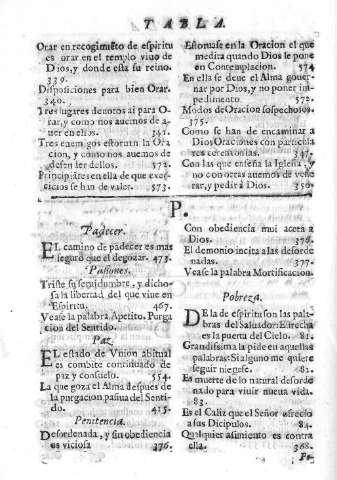 TABLA.
Orar en recogimiẽto de espiritu
es orar en el templo viuo de
Dios, y donde esta su reino.
339.
Disposiciones para bien Orar.
340.
Tres lugares denotos ai para O-
rar, y como nos auemos de a-
uer en ellos. 341.
Tres enem gos estoruan la Ora
cion, y como nos auemos de
defen ler dellos. 572.
Principiãtes en ella de que exer-
cicios se han de valer. 573.
Estoruase en la Oracion el que
medita quando Dios le pone
en Contemplacion. 574
En ella se deue el Alma gouer-
nar por Dios, y no poner im-
pedimento 572.
Modos de Oracion sospechosos.
375.
Como se han de encaminar a
Dios Oraciones con particula
res ceremonias. 347.
Con las que enseña la Iglesia, y
no con otras auemos de vene
rar, y pedir à Dios. 350
P.
Padecer.
EL camino de padecer es mas
seguro que el de gozar. 473.
Passiones.
Triste su seruidumbre, y dicho-
sa la libertad del que viue en
Espiritu. 467.
Vease la palabra Apetito. Purga
cion del Sentido.
Paz.
EL estado de Vnion abitual
es combite continuado de
paz y consuelo. 554.
La que goza el Alma despues de
la purgacion pasiua del Senti-
do. 415.
Penitencia.
Desordenada, y sin obediencia
es viciosa 376.
Con obediencia mui aceta a
Dios. 376.
El demonio incita a las desorde
nadas. 377.
Vease la palabra Mortificacion.
Pobreza.
DEla de espiritu son las pala-
bras del Saluador: Estrecha
es la puerta del Cielo. 81.
Grandissima la pide en aquellas
palabras: Si alguno me quiere
seguir nieguese. 82.
Es muerte de lo natural desorde
nado para viuir nueua vida.
83.
Es el Caliz que el Señor ofrecio
a sus Dicipulos. 84.
Qualquier asimiento es contra
ella. 368.
Po-